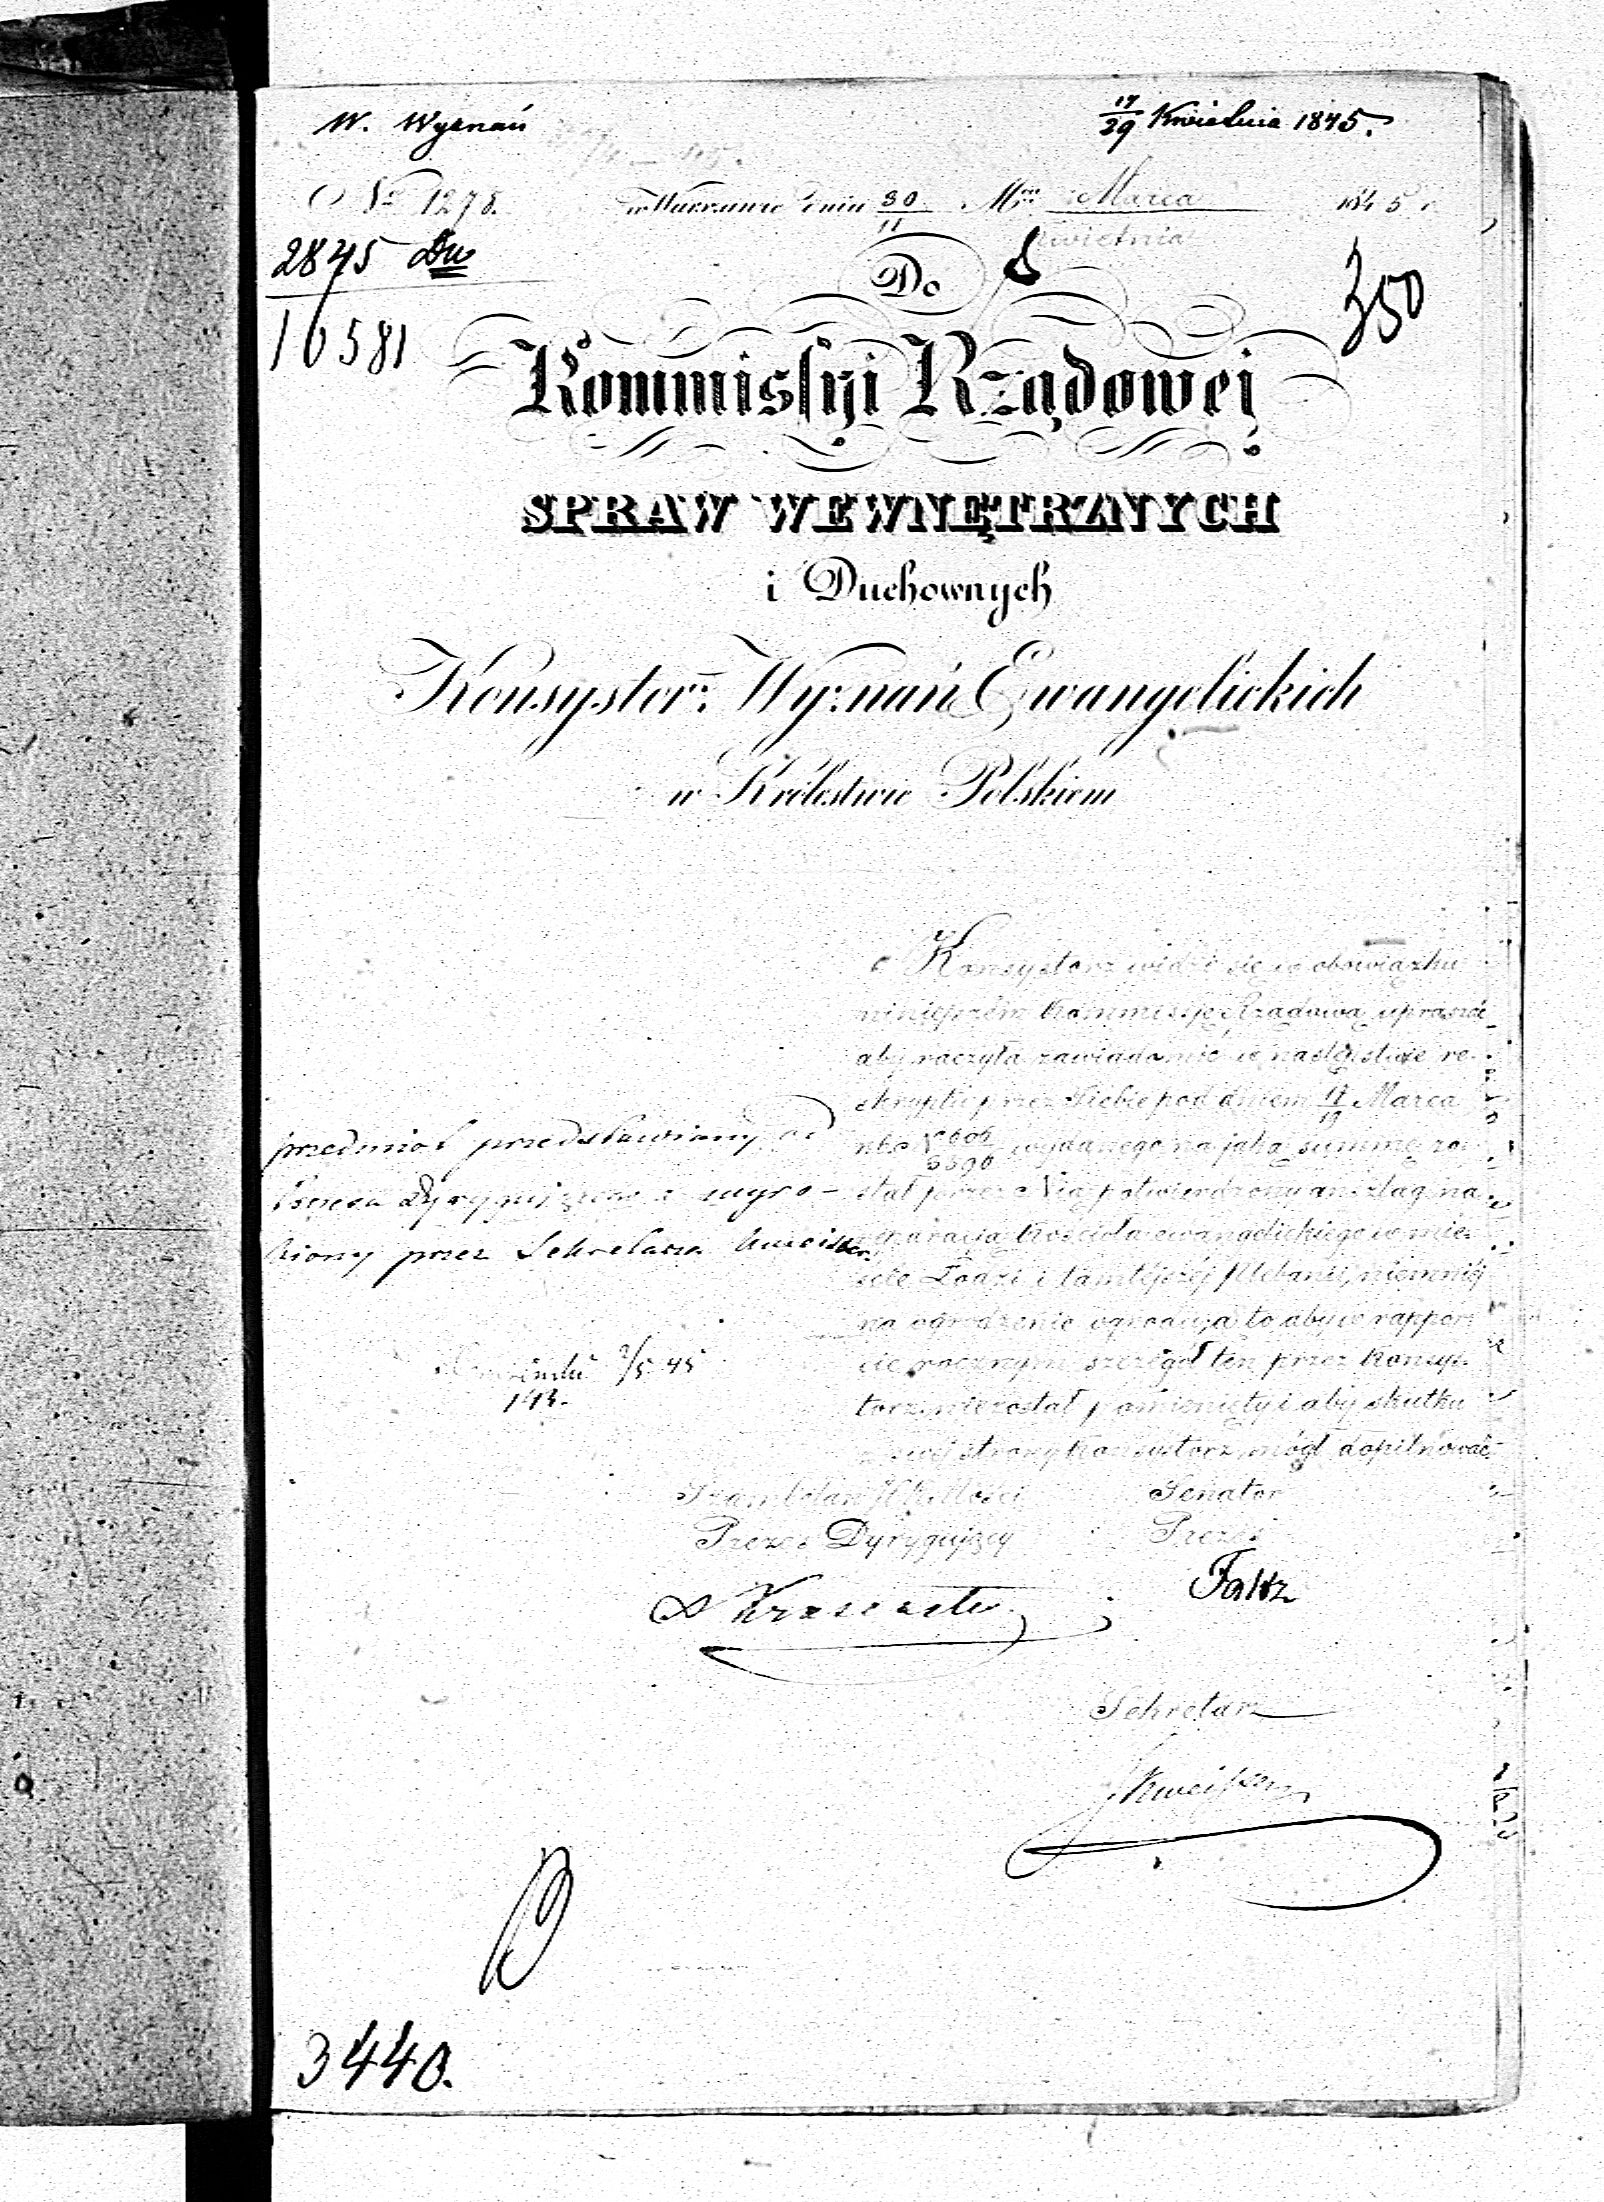 W. Wyznań
17/29 Kwietnia 1845.
No 1278.
w Warszawie dnia 30/11 Mca Marca/Kwietnia 1845 r
2845 Du
16581
350
Do
Kommissyi Rządowej
SPRAW WEWNĘTRZNYCH
i Duchownych
Konsystorz Wyznań Ewangelickich
w Królestwie Polskiem
Konsystorz widzi się w obowiązku
niniejszém Kommissyę Rządową upraszać
aby raczyła zawiadomić w następstwie re-
skryptu przez Siebie pod dniem Marca
wydanego na jaką summę zo-
stał przez Nią potwierdzony anszlag na
reparacją kościoła ewangelickiego w mie-
ście Łodzi i tamtejszéj Plebanii, niemniéj
na ogrodzenie ogrodu, a to aby w rappor-
cie rocznym szczegół ten przez Konsys-
torz nie został pominięty i aby skutku
z swéj strony Konsystorz mógł dopilnować
przedmiot przedstawiony od
Prezesa Dyrygującego a wyro-
biony przez Sekretarza Kweisser.
2/5 45
143.
Szambelan JKMości
Prezes Dyrygujący
Senator
Prezes
Faltz
Sekretarz
Kweisser
3440.